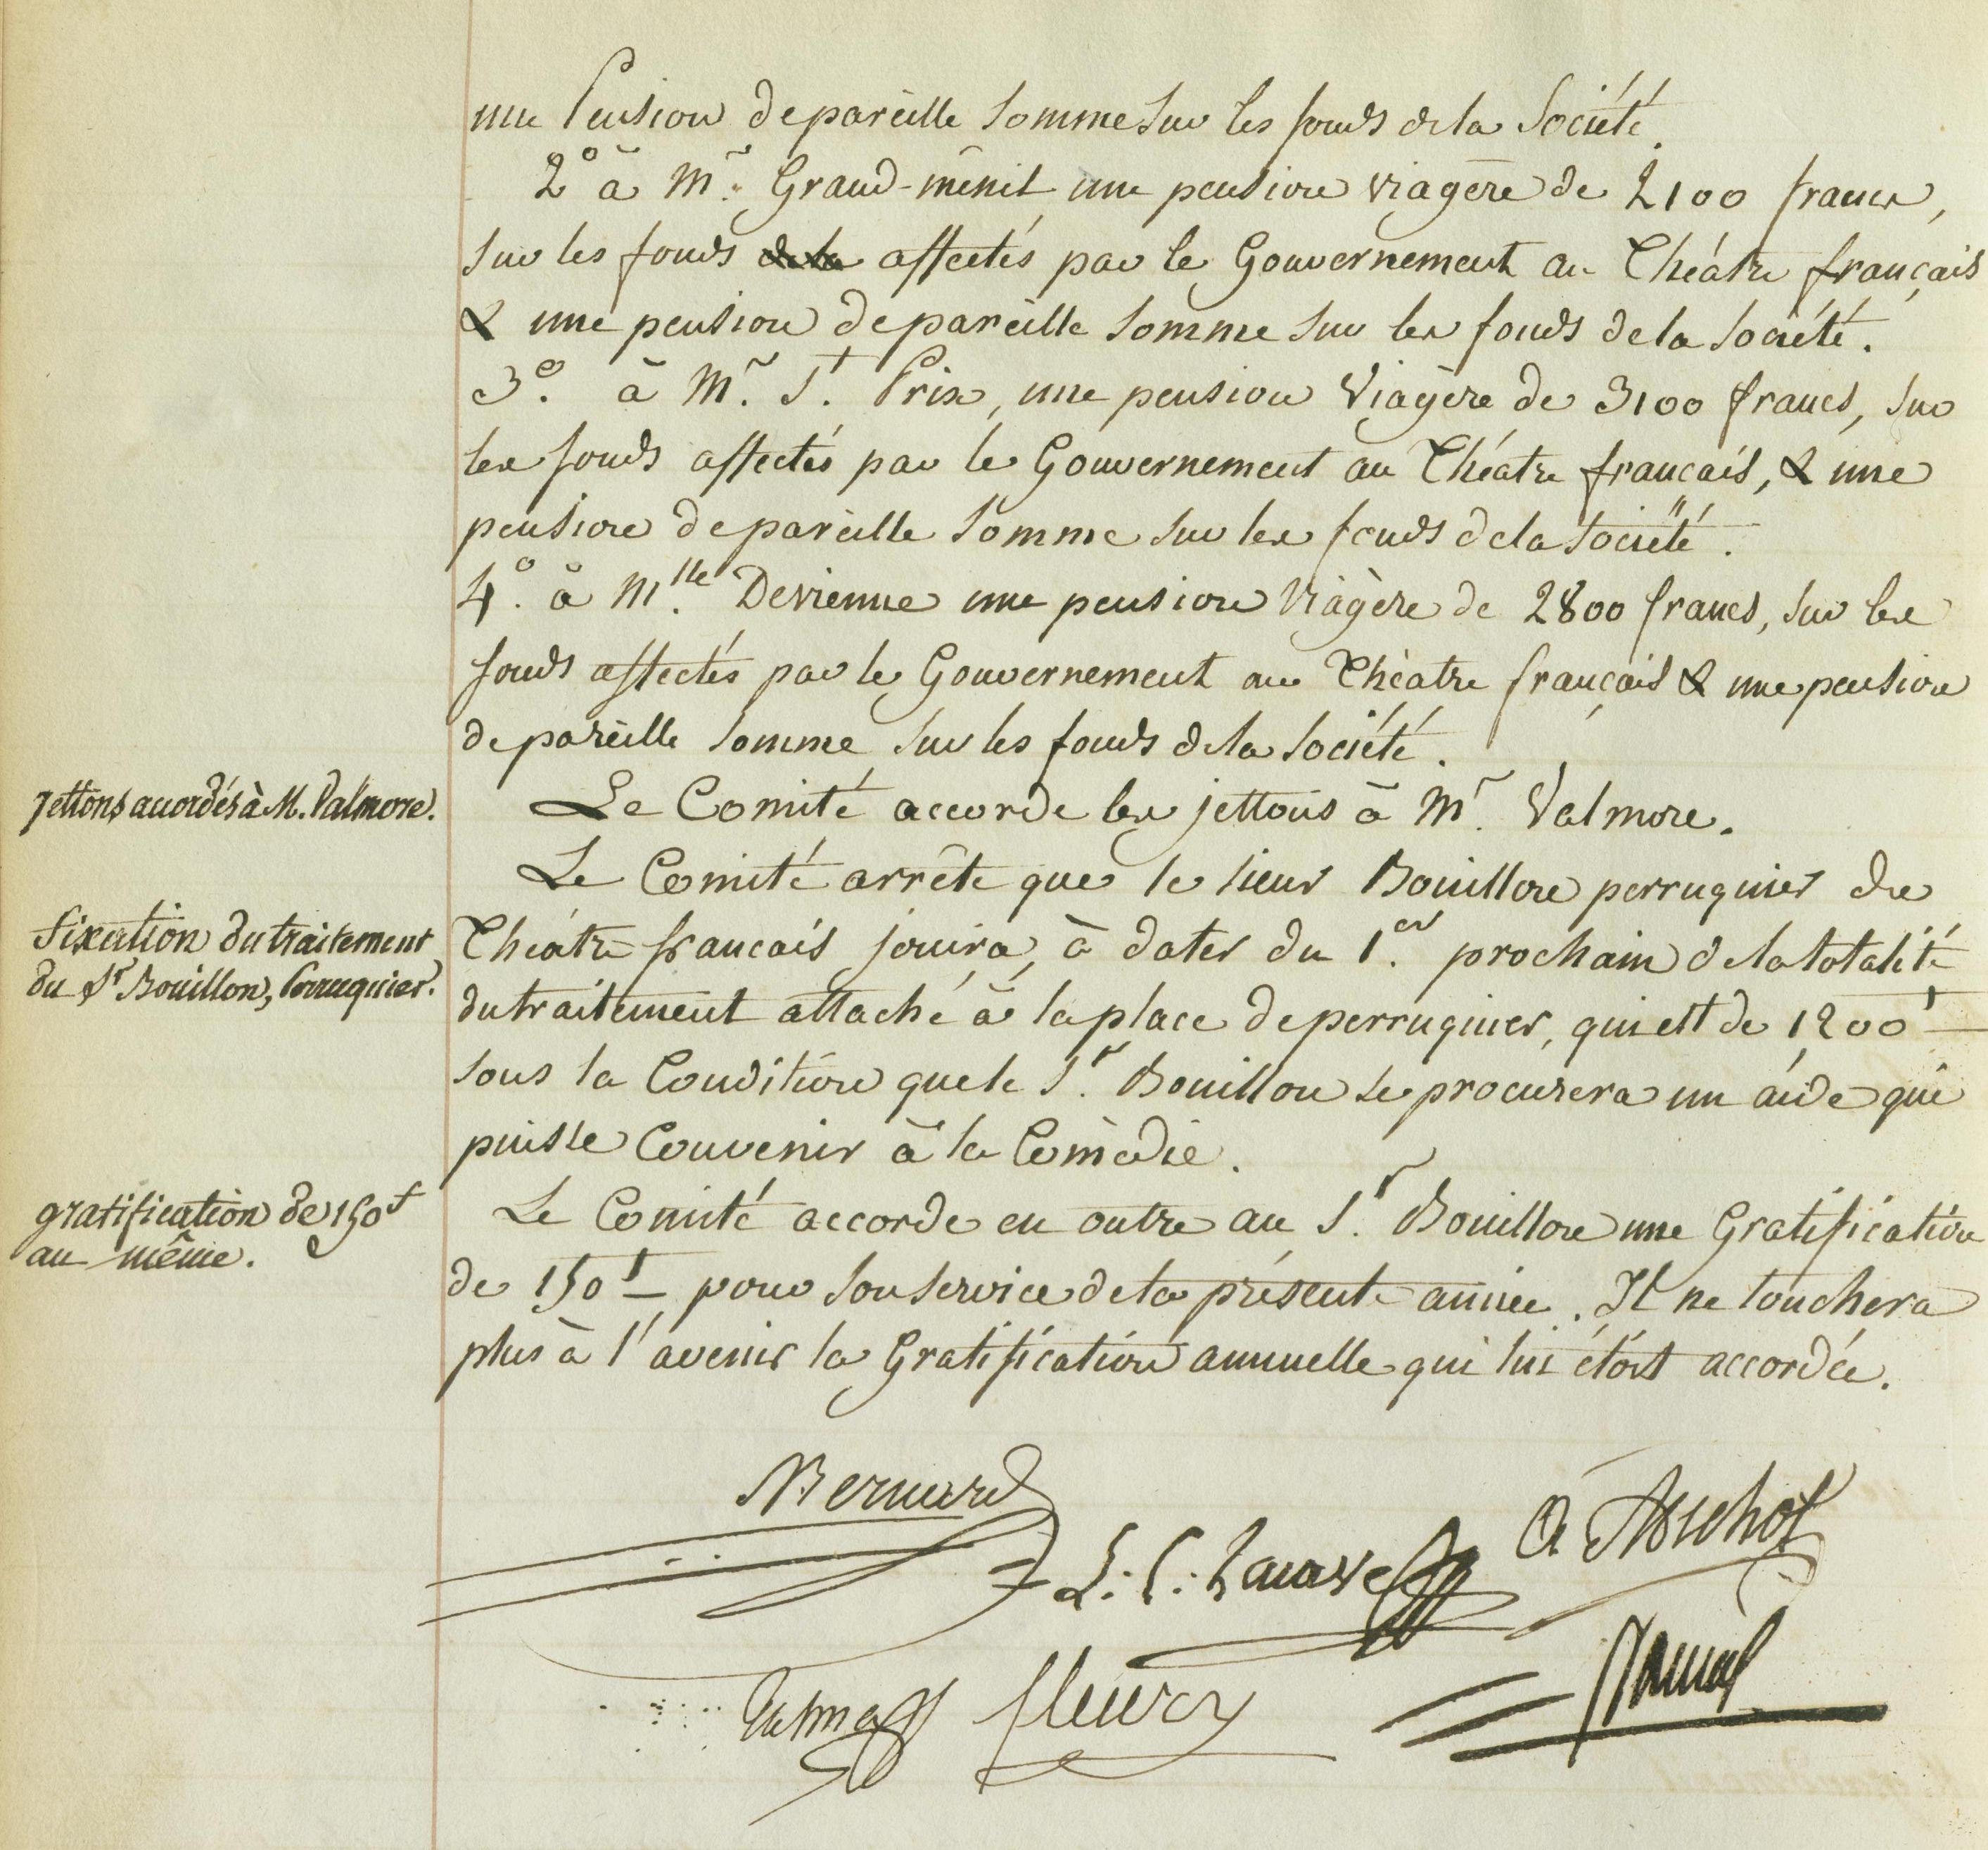 une Pension de pareille somme sur les fonds de la Société.
2.° à M.r Grand-ménil une pension viagère de 2100 francs,
sur les fonds de la affectés par le Gouvernement au Théâtre français
& une pension de pareille somme sur les fonds de la Société.
3.° à M.r S.t Prix, une pension Viagère de 3100 francs, sur
les fonds affectés par le Gouvernement au Théâtre français, & une
pension de pareille somme sur les fonds de la Société.
4.° à M.lle Devienne une pension Viagère de 2800 francs, sur les
fonds affectés par le Gouvernement au Théâtre français & une pension
de pareille somme sur les fonds de la Société.
Jettons accordés à M. Valmore.
Le Comité accorde les jettons à M.r Valmore.
Le Comité arrête que le sieur Bouillon perruquier du
fixation du traitement
du Sr Bouillon, Perruquier.
Théâtre français jouira, à dater du 1.er prochain de la totalité
du traitement attaché à la place de perruquier, qui est de 1200f
sous la Condition que le S.r Bouillon se procurera un aide qui
puisse Convenir à la Comédie.
gratification de 150f
au même.
Le Comité accorde en outre au S.r Bouillon une Gratification
de 150f pour son service de la présente année. Il ne touchera
plus à l'avenir la Gratification annuelle qui lui étoit accordée.
Bernard
A Michot
Talma fleury